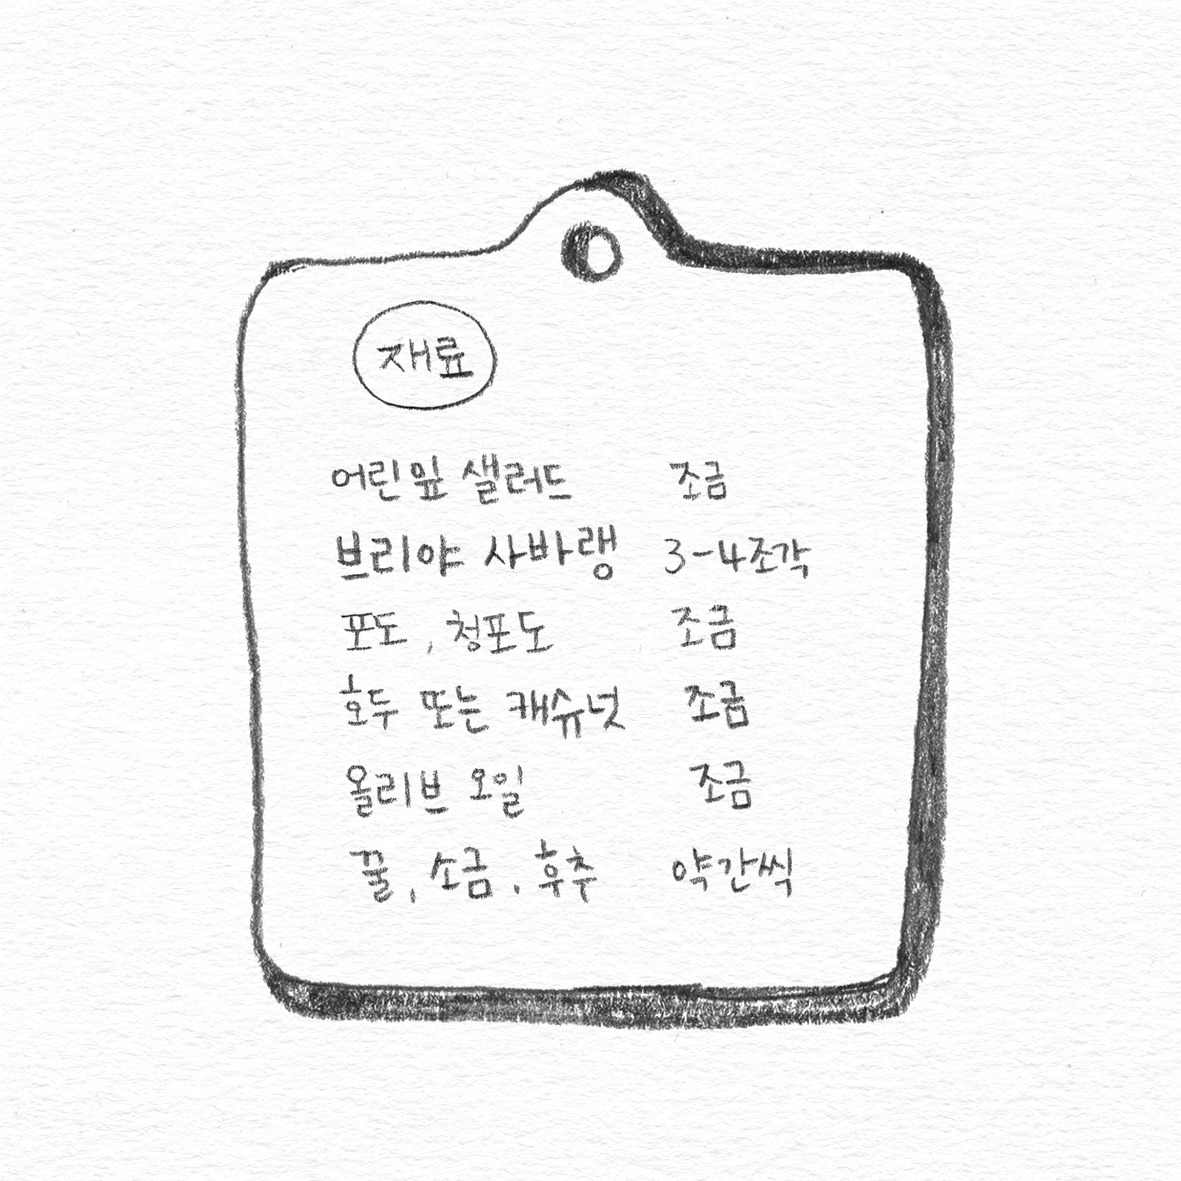 재료
어린잎 샐러드 조금
브리야 사바랭 3-4조각
포도, 청포도 조금
호두 또는 캐슈넛 조금
올리브 오일 조금
꿀, 소금, 후추 약간씩